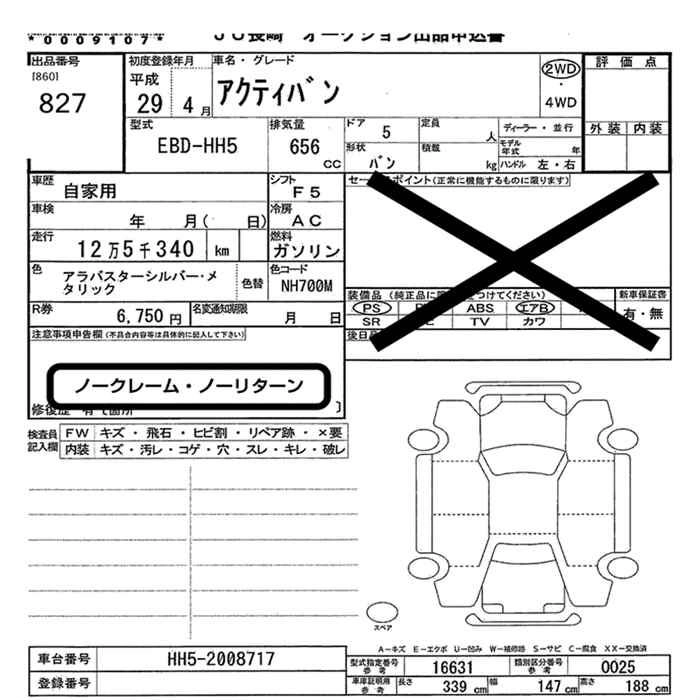 *0009107* JU長崎 オークション出品申込書
出品番号 [860] 827
初度登録年月 平成 29 4 月
車名・グレード アクティバン
2WD ・ 4WD
評価点
外装 内装
型式 EBD-HH5
排気量 656 CC
ドア 5
定員 人
ディーラー・並行
モデル年式 年
形状 バン
積載 kg
ハンドル 左・右
車歴 自家用
シフト F5
車検 年 月( 日)
冷房 AC
走行 12万5千340 km
燃料 ガソリン
色 アラバスターシルバー・メタリック
色替
色コード NH700M
R券 6,750 円
名変通知期限 月 日
セー ポイント(正常に機能するものに限ります)
装備品 (純正品に つけてください)
PS ABS エアB
SR TV カワ
新車保証書 有・無
後日
注意事項申告欄 (不具合内容等は具体的に記入して下さい)
ノークレーム・ノーリターン
修復歴 有( 箇所 )
検査員記入欄
FW キズ・飛石・ヒビ割・リペア跡・×要
内装 キズ・汚レ・コゲ・穴・スレ・キレ・破レ
スペア
A-キズ E-エクボ U-凹み W-補修跡 S-サビ C-腐食 XX-交換済
車台番号 HH5-2008717
登録番号
型式指定番号 参考 16631
類別区分番号 参考 0025
車庫証明用 参考 長さ 339 cm 幅 147 cm 高さ 188 cm